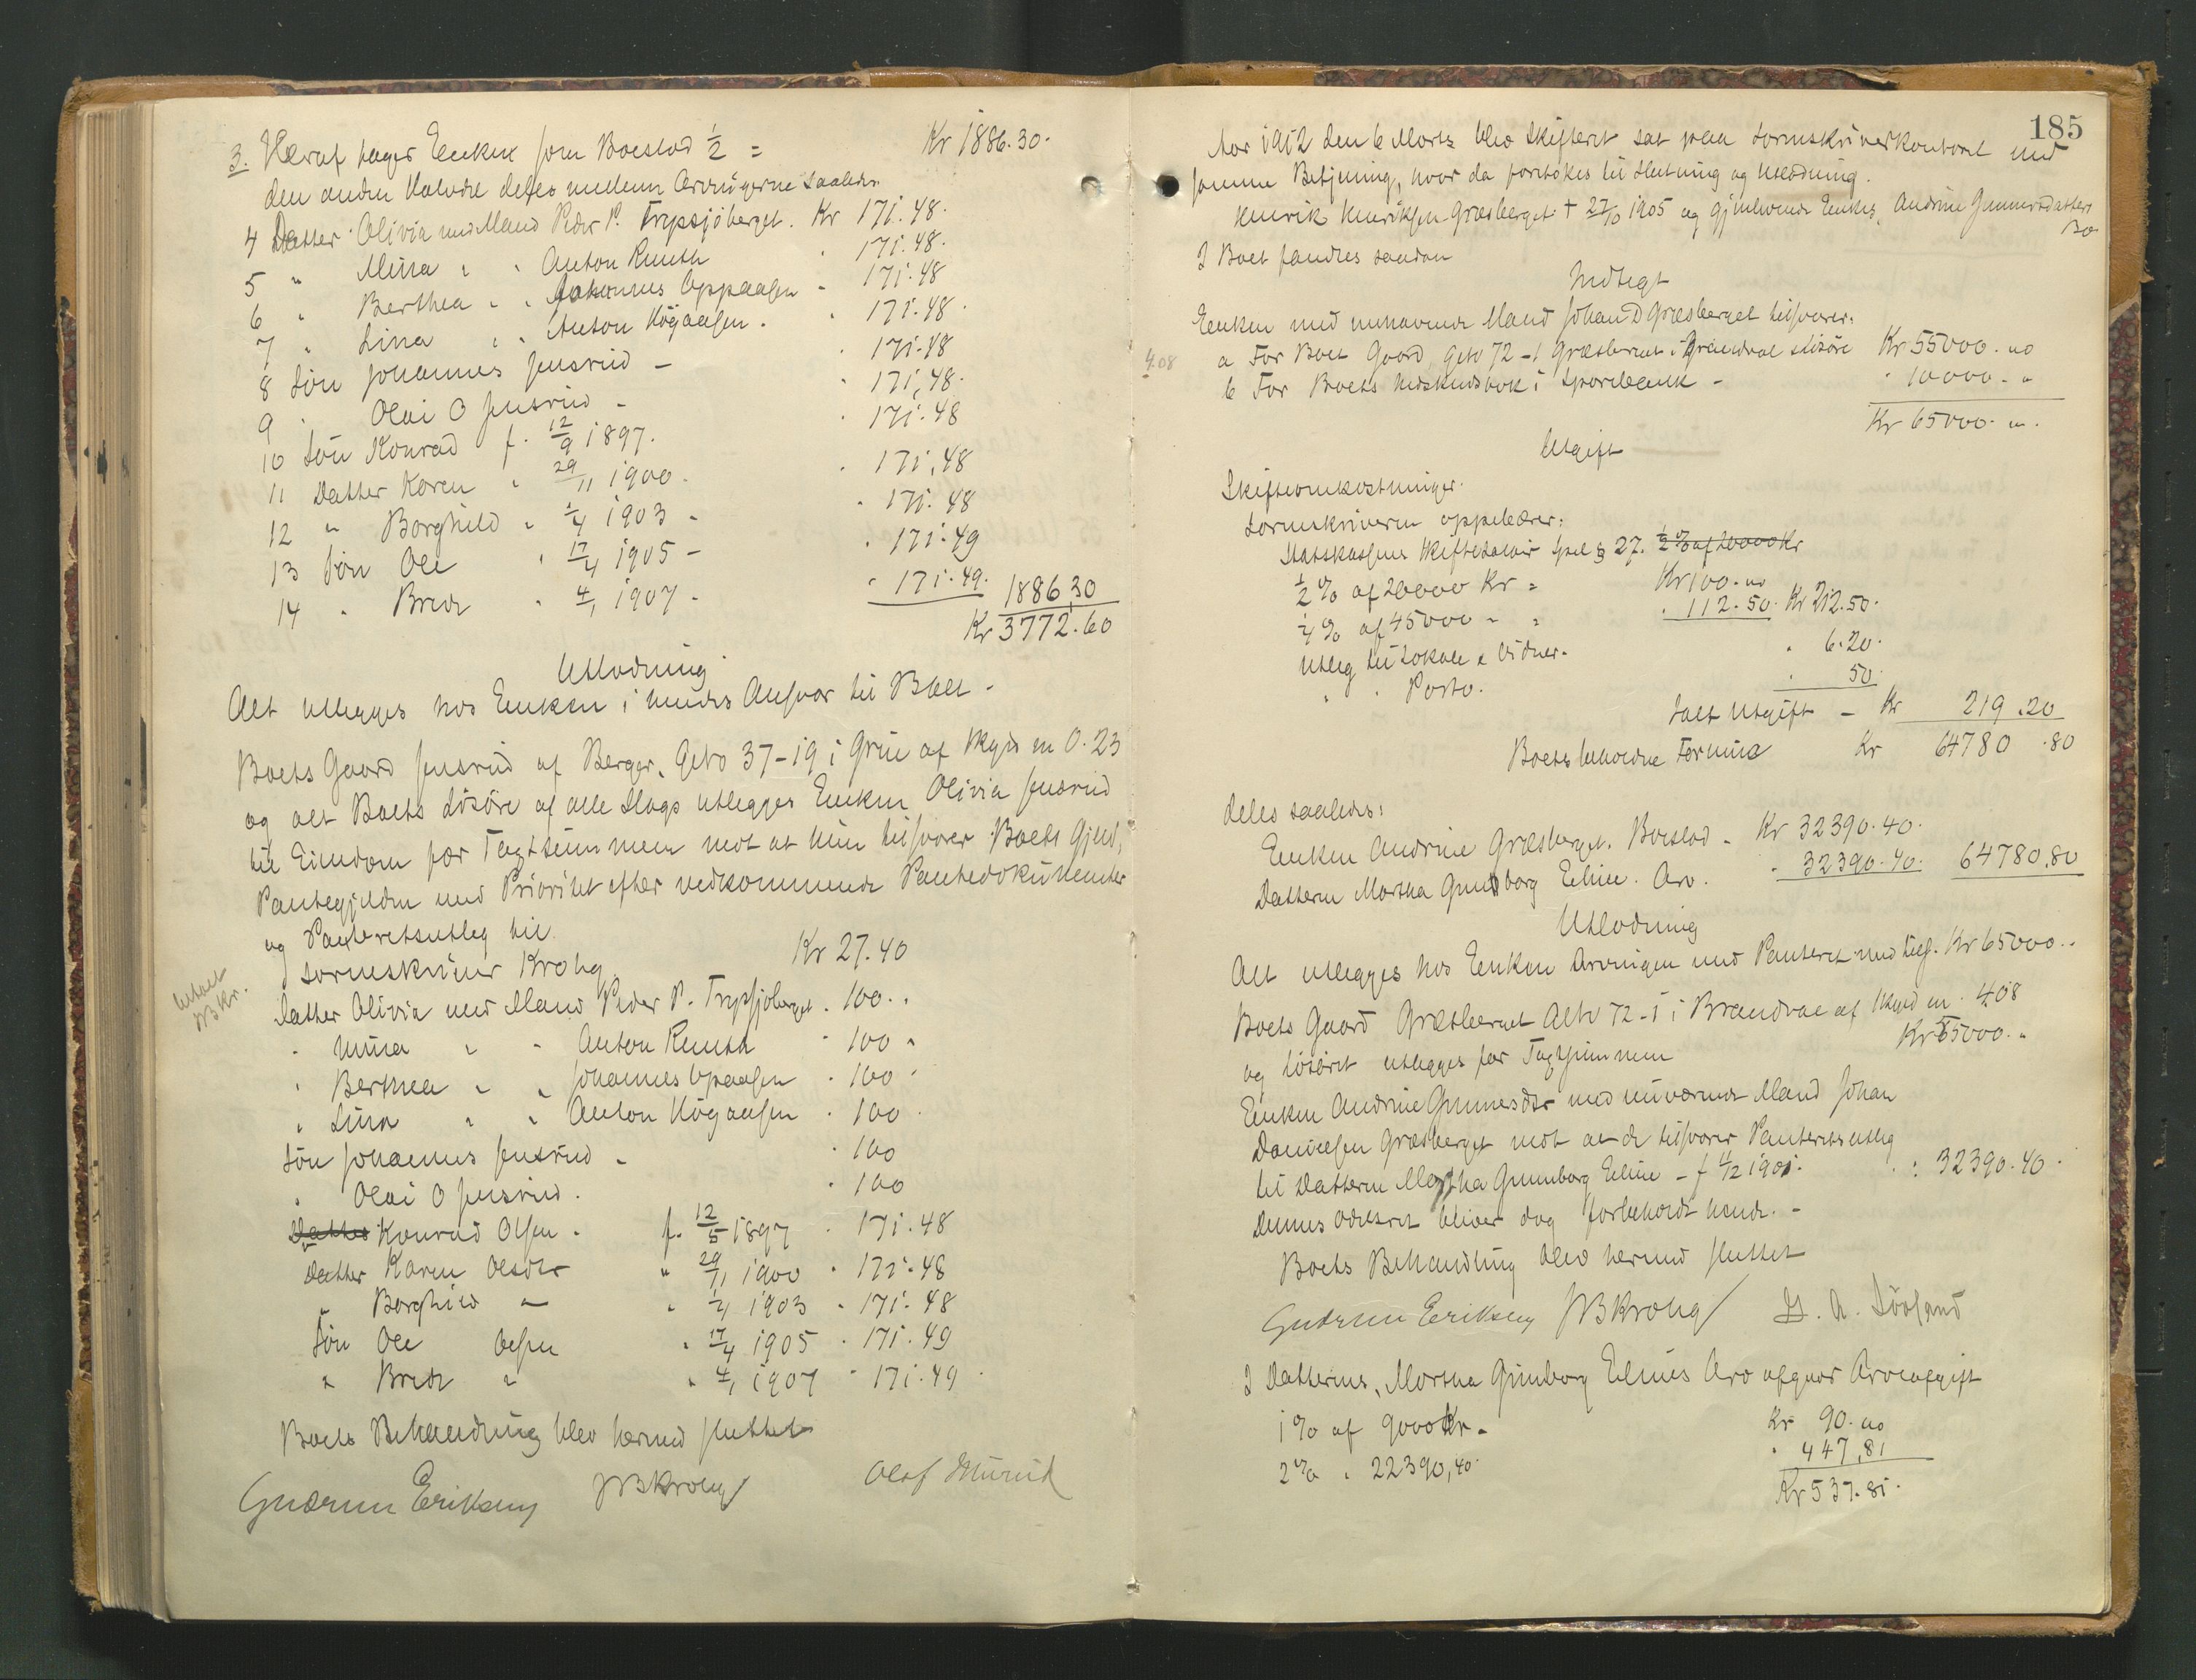 3. Heraf tager Enken som Boeslod 1/2 = Kr 1886.30.
den anden Halvdel deles mellem Arvingerne saaledes
4 Datter Olivia med Mand Peder P. Trysjøberget. Kr 171.48.
5 " Mina " " Anton Ruuth " 171.48.
6 " Berthea " " Johannes Oppaasen " 171.48
7 " Lina " " Anton Högaasen. " 171.48.
8 Søn Johannes Jensrud - " 171.48
9 " Olai O Jensrud - " 171.48.
10 Søn Konrad f. 12/9 1897. " 171.48
11 Datter Karen " 29/11 1900. " 171.48
12 " Borghild " 1/4 1903 - " 171.48
13 Søn Ole " 17/4 1905 - " 171.49
14 " Brede " 4/1 1907 - " 171.49. 1886.30
Kr 3772.60
Utlodning
Alt utlægges hos Enken i hendes Ansvar til Boet -
Boets Gaard Jensrud af Berger, Gno 37-19 i Grue af Skyld m 0.23
og alt Boets Løsøre af alle Slags utlægges Enken Olivia Jensrud
til Eiendom for Taxtsummen mot at hun tilsvarer Boets Gjæld,
Pantegjælden med Prioritet efter vedkommende Pantedokumenter
og Panteretsutlæg til
Sorenskriver Krohg Kr 27.40
betalt
JBKr.
Datter Olivia med Mand Peder P. Trysjøberget. 100. "
" Mina " " Anton Ruuth " 100 "
" Berthea " " Johannes Opaasen " 100 "
" Lina " " Anton Högaasen " 100 "
Søn Johannes Jensrud - " 100
" Olai O Jensrud. " 100
Datter Konrad Olsen - f. 12/5 1897 " 171.48
Datter Karen Olsdtr " 29/11 1900 " 171.48
" Borghild " " 1/4 1903 " 171.48
Søn Ole Olsen " 17/4 1905 " 171.49
" Brede " " 4/1 1907 " 171.49
Boets Behandling blev hermed sluttet
Gudrun Eriksen JBKrohg Olaf
185
Aar 1912 den 6 Marts blev Skifteret sat paa Sorenskriverkontoret med
samme Betjening, hvor da foretokes til Slutning og Utlodning.
Henrik Henriksen Græsberget † 27/10 1905 og gjenlevende Enkes, Andrine Gunnersdatters
Bo
I Boet fandtes saadan
Indtægt
Enken med nuhavende Mand Johan D Græsberget tilsvarer:
4.08 a For Boets Gaard Gno 72-1 Græsberget i Brandval & Løsøre Kr 55000.00
b For Boets Indskudsbok i Sparebank - " 10000. "
Kr 65000. "
Utgift
Skifteomkostninger.
Sorenskriveren oppebærer:
Statskassens Skiftesalair Spl § 27. 1/2 % af 20000 Kr
1/2 % af 20000 Kr = Kr 100.00
1/4 % af 45000 " = " 112.50. Kr 212.50.
Utlæg til Lokale & Vidner. " 6.20.
" " Porto. " 50.
Ialt Utgift - Kr 219.20
Boets beholdne Formue Kr 64780.80
deles saaledes:
Enken Andrine Græsberget. Boeslod - Kr 32390.40.
Datteren Martha Gunborg Eline. Arv. " 32390.40. 64780.80
Utlodning
Alt utlægges hos Enken Arvingen med Panteret med tils. Kr 65000. "
Boets Gaard Græsberget Gno 72-1 i Brandval af Skyld m. 4.08
og Løsøret utlægges for Taxtsummen Kr 55000. "
Enken Andrine Gunnersdtr med nuværende Mand Johan
Danielsen Græsberget mot at de tilsvarer Panteretsutlæg
til Datteren Martha Gunnborg Eline - f 4/12 1901. " : 32390.40.
Dennes Odelsret bliver dog forbeholdt hende. -
Boets Behandling blev hermed sluttet
Gudrun Eriksen JBKrohg G. A. Lövland
I Datterens, Martha Gunborg Elines Arv afgaar Arveafgift
1 % af 9000 Kr. - Kr 90.00
2 % " 22390,40. " 447,81
Kr 537.81.